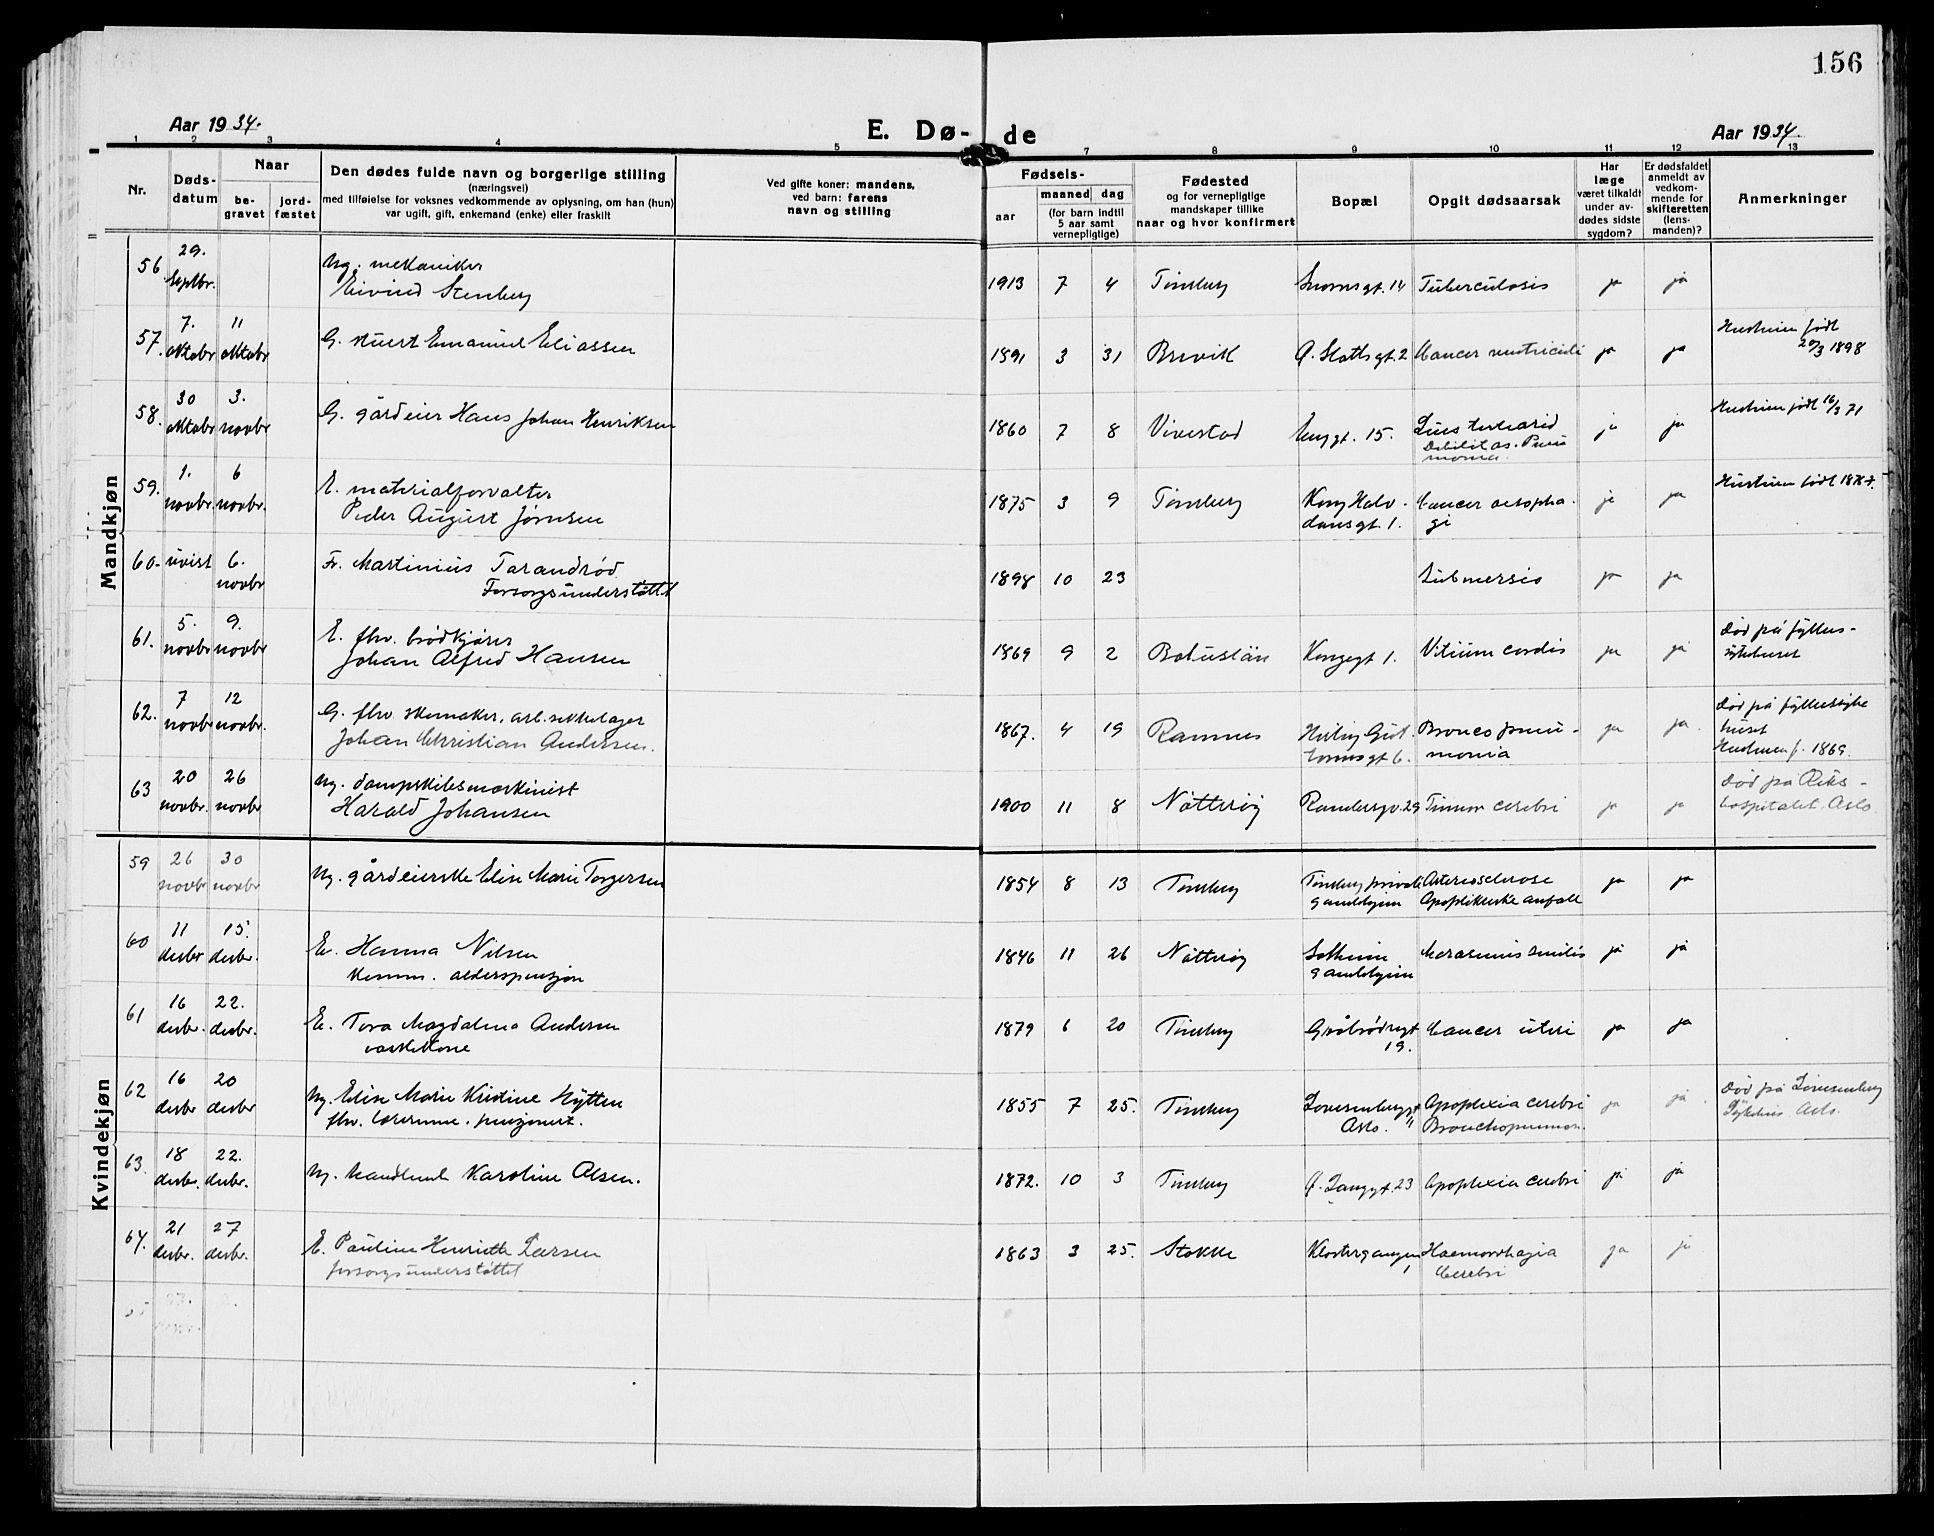 156
Aar 1934.
E. Dø- de
Aar 1934.
1 2 3 4 5 7 8 9 10 11 12 13
Nr.
Døds-
datum
Naar
be-
gravet
jord-
fæstet
Den dødes fulde navn og borgerlige stilling
(næringsvei)
med tilføielse for voksnes vedkommende av oplysning, om han (hun)
var ugift, gift, enkemand (enke) eller fraskilt
Ved gifte koner: mandens,
ved barn: farens
navn og stilling
Fødsels-
aar
maaned
dag
(for barn indtil
5 aar samt
vernepligtige)
Fødested
og for vernepligtige
mandskaper tillike
naar og hvor konfirmert
Bopæl
Opgit dødsaarsak
Har
læge
været tilkaldt
under av-
dødes sidste
sygdom?
Er dødsfaldet
anmeldt av
vedkom-
mende for
skifteretten
(lens-
manden)?
Anmerkninger
Mandkjøn
56. 29. septbr. Ug. mekaniker
Eivind Stenberg
1913 7 4 Tønsberg Snorresgt. 14 Tuberculosis ja ja
57. 7. oktobr 11 oktobr G. stuert Emanuel Eliassen
1891 3 31 Brevik Cancer ventriculi ja ja Hustruen født
20/3 1898
58. 30 oktobr 3. novbr G. gårdeier Hans Johan Henriksen
1860 7 8 Vivestad Enggt. 15. Lues tertiærid
Debilitas. Pneu
monia.
ja ja Hustruen født 16/3 71
59. 1. novbr. 6 novbr. E. materialforvalter
Peder August Jørnsen
1875 3 9 Tønsberg Kong Halv-
dansgt. 1.
Cancer oesopha-
gi
ja ja Hustruen født
60. uvist 6. novbr Fr. Martinius Tarandrød
Forsorgsunderstøttet
1898 10 23 Submersio ja ja
61. 5. novbr 9. novbr E. fhv. brødkjører
Johan Alfred Hansen
1869 9 2 Bohuslän Kongegt 1. Vitium cordis ja ja Død på fylkes-
sykehuset
62. 7 novbr 12 novbr. G. fhv. skomaker, arb. sekkelager
Johan Christian Andersen.
1867. 4 19 Ramnes Hertug Gut
tormsgt 6.
Broncopneu-
monia
ja ja. Død på fylkessyke
huset
Hustruen f. 1869.
63 20 novbr. 26 novbr Ug. dampskibsmaskinist
Harald Johansen
1900 11 8 Nøtterøy Randersgv. 29 Tumor cerebri ja ja Død på Riks-
hospitalet, Oslo
Kvindekjøn
59 26 novbr 30 novbr Ug. gårdeierske Elise Marie Torgersen
1854 8 13 Tønsberg Tønsberg private
gamlehjem
Arteriosclerose
Apoplektiske anfall
ja ja
60 11 desbr 15. desbr. E. Hanna Nilsen
Komm. alderspensjon
1846 11 26 Nøtterøy Solheim
gamlehjem
Marasmus senilis ja ja
61 16 desbr. 22. desbr. E. Tora Magdalena Andersen
vaskekone
1879 6 20 Tønsberg Gråbrødregt
19.
Cancer uteri ja ja
62 16 desbr 20 desbr Ug. Elise Marie Kristine Hytten
fhv. lærerinne. pensjonert.
1855 7 25. Tønsberg Lovisenberggt
Oslo. 11
Apoplexia cerebri
Bronchopneumon.
ja ja. Død på Lovisenberg
Sykehus Oslo.
63. 18 desbr. 22. desbr. Ug. handlende Karoline Olsen.
1872. 10 3 Tønsberg Ø. Langgt. 23 Apoplexia cerebri ja ja
64. 21 desbr. 27 desbr. E. Pauline Henriette Larsen
forsorgsunderstøttet
1863 3 25. Stokke Klostergangen
1
Haemorrhagia
Cerebri
ja ja